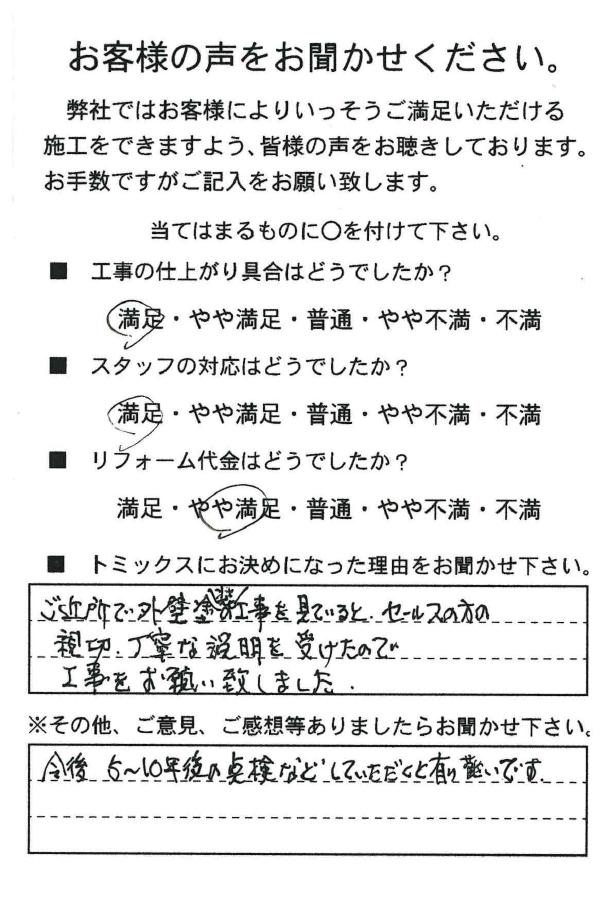 お客様の声をお聞かせください。
弊社ではお客様によりいっそうご満足いただける
施工をできますよう、皆様の声をお聴きしております。
お手数ですがご記入をお願い致します。
当てはまるものに〇を付けて下さい。
■ 工事の仕上がり具合はどうでしたか？
満足・やや満足・普通・やや不満・不満
■ スタッフの対応はどうでしたか？
満足・やや満足・普通・やや不満・不満
■ リフォーム代金はどうでしたか？
満足・やや満足・普通・やや不満・不満
■ トミックスにお決めになった理由をお聞かせ下さい。
ご近所で外壁塗装工事を見ていると、セールスの方の
親切、丁寧な説明を受けたので
工事をお願い致しました。
※その他、ご意見、ご感想等ありましたらお聞かせ下さい。
今後 5～10年後の点検などしていただくと有り難いです。